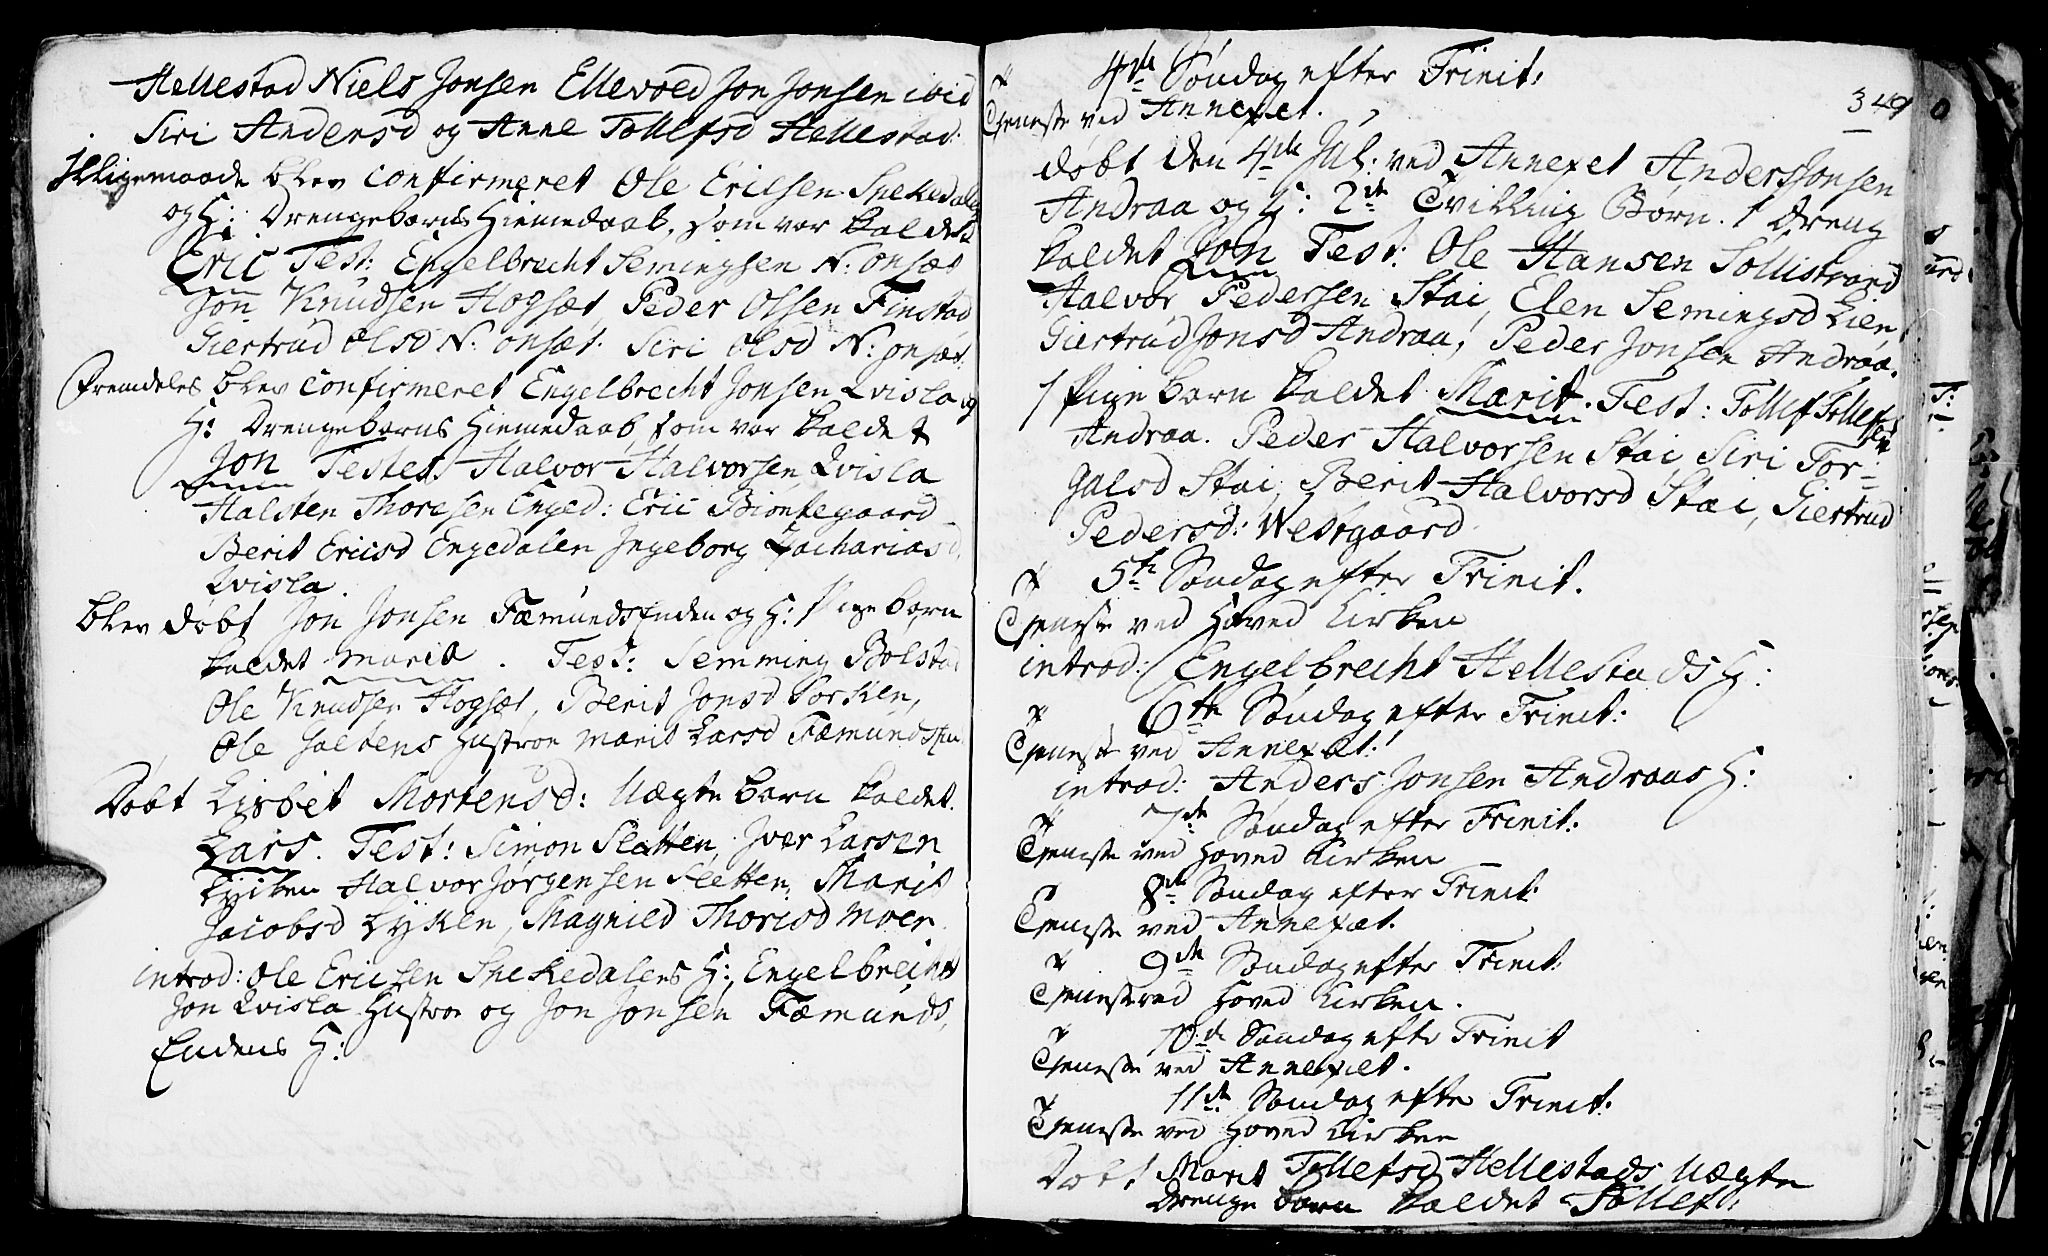 Hellestad Niels Jonsen Ellevold Jon Jonsen ibid
Siri Andersd og Anne Tollefsd Hellestad.
Illigemaade blev confirmeret Ole Ericsen Snekedalen
og H: Drengebarns Hiemedaab, som var kaldet
Eric Test: Engelbrecht Semingsen N: onsæt
Jon Knudsen Hogsæt, Peder Olsen Finstad
Giertrud Olsd N: onsæt. Siri Olsd N: onsæt.
Fremdeles blev confirmeret Engelbrecht Jonsen Qvisla og
H: Drengebarns Hiemedaab som var kaldet
Jon Testes: Halvor Halvorsen Qvisla
Halsten Thoresen Enged: Eric Biontegaard
Berit Ericsd Engedalen Ingeborg Zachariasd.
Qvisla.
blev døbt Jon Jonsen Fæmundsenden og H: Pigebarn
kaldet Marit. Test: Semming Bolstad
Ole Knudsen Hogsæt, Berit Jonsd Sorken,
Ole Saltens Hustroe Marit Larsd Fæmundsen
Døbt Lisbet Mortensd: Uægte barn kaldet.
Lars. Test: Simon Sletten, Iver Larsen
Lyken Halvor Jørgensen Sletten, Marit
Jacobsd Lyken, Magnild Thorisd Moen.
introd: Ole Ericsen Snekedalens H: Engelbrecht
Jon Qvisla Hustroe og Jon Jonsen Fæmunds,
Endens H:
349
4de Søndag efter Trinit:
Tjeneste ved Annexet.
døbt den 4de Jul: ved Annexet Anders Jonsen
Andraa og H: 2de Tvilling Børn. 1 Dreng
kaldet Jon Test: Ole Hansen Sollistrand
Halvor Pedersen Stai, Elen Semingsd Lien,
Giertrud Jonsd Andraa, Peder Jonsen Andraa.
1 Pigebarn kaldet Marit. Test: Tollef Tollefsen
Andraa. Peder Halvorsen Stai Siri Tor-
galsd Stai, Berit Halvorsd Stai, Giertrud
Pedersd: Westgaard
5te Søndag efter Trinit.
Tjeneste ved Hoved Kirken
introd: Engelbrecht Hellestads H:
6te Søndag efter Trinit:
Tjeneste ved Annexet.
introd: Anders Jonsen Andraas H:
7de Søndag efter Trinit:
Tjeneste ved Hoved Kirken
8de Søndag efter Trinit:
Tjeneste ved Annexet.
9de Søndag efter Trinit:
Tjeneste ved Hoved Kirken.
10de Søndag efter Trinit
Tjeneste ved Annexet.
11te Søndag efter Trinit:
Tjeneste ved Hoved Kirken
Døbt Marit Tollefsd Hellestads Uægte
Drenge barn kaldet Tollef.